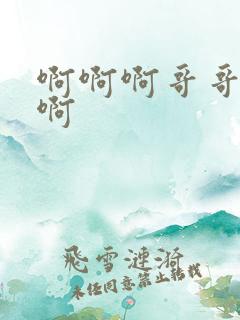 啊啊啊哥哥
啊
飛雪漣漪
未经同意禁止转载